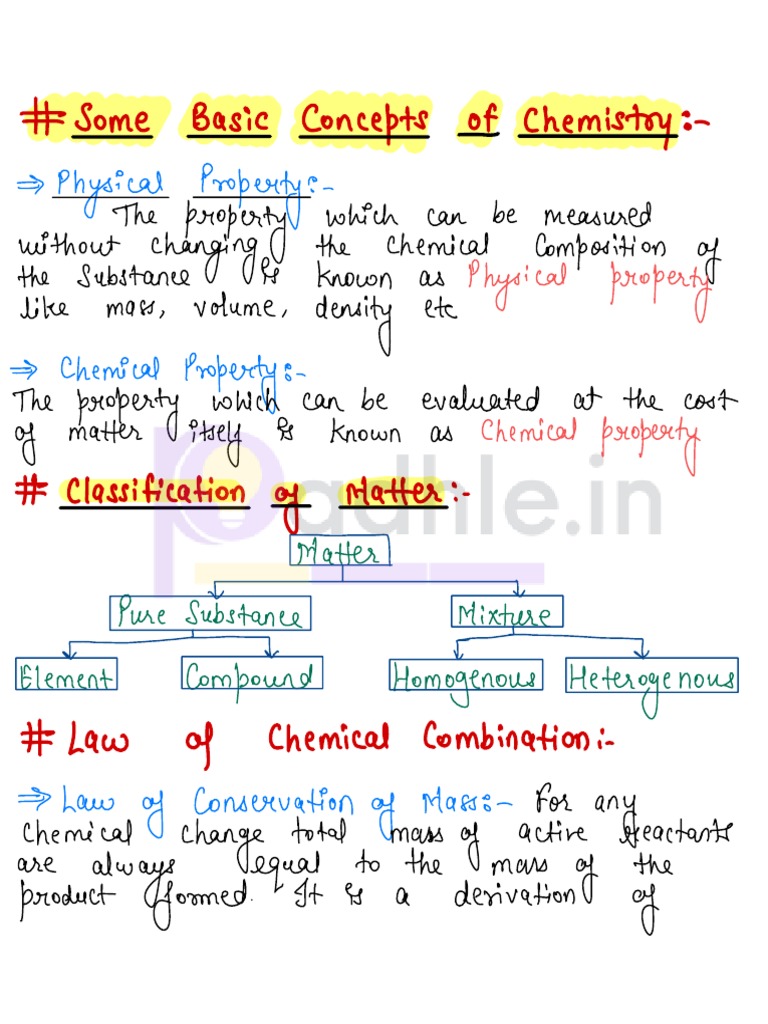 # Some Basic Concepts of Chemistry:-
⇒ Physical Property:-
The property which can be measured
without changing the chemical composition of
the substance is known as Physical property
like mass, volume, density etc
⇒ Chemical Property:-
The property which can be evaluated at the cost
of matter itself is known as Chemical property
# Classification of Matter:-
adhle.in
Matter
Pure Substance Mixture
Element Compound Homogenous Heterogenous
# Law of Chemical Combination:-
⇒ Law of Conservation of Mass:- For any
chemical change total mass of active reactants
are always equal to the mass of the
product formed. It is a derivation of